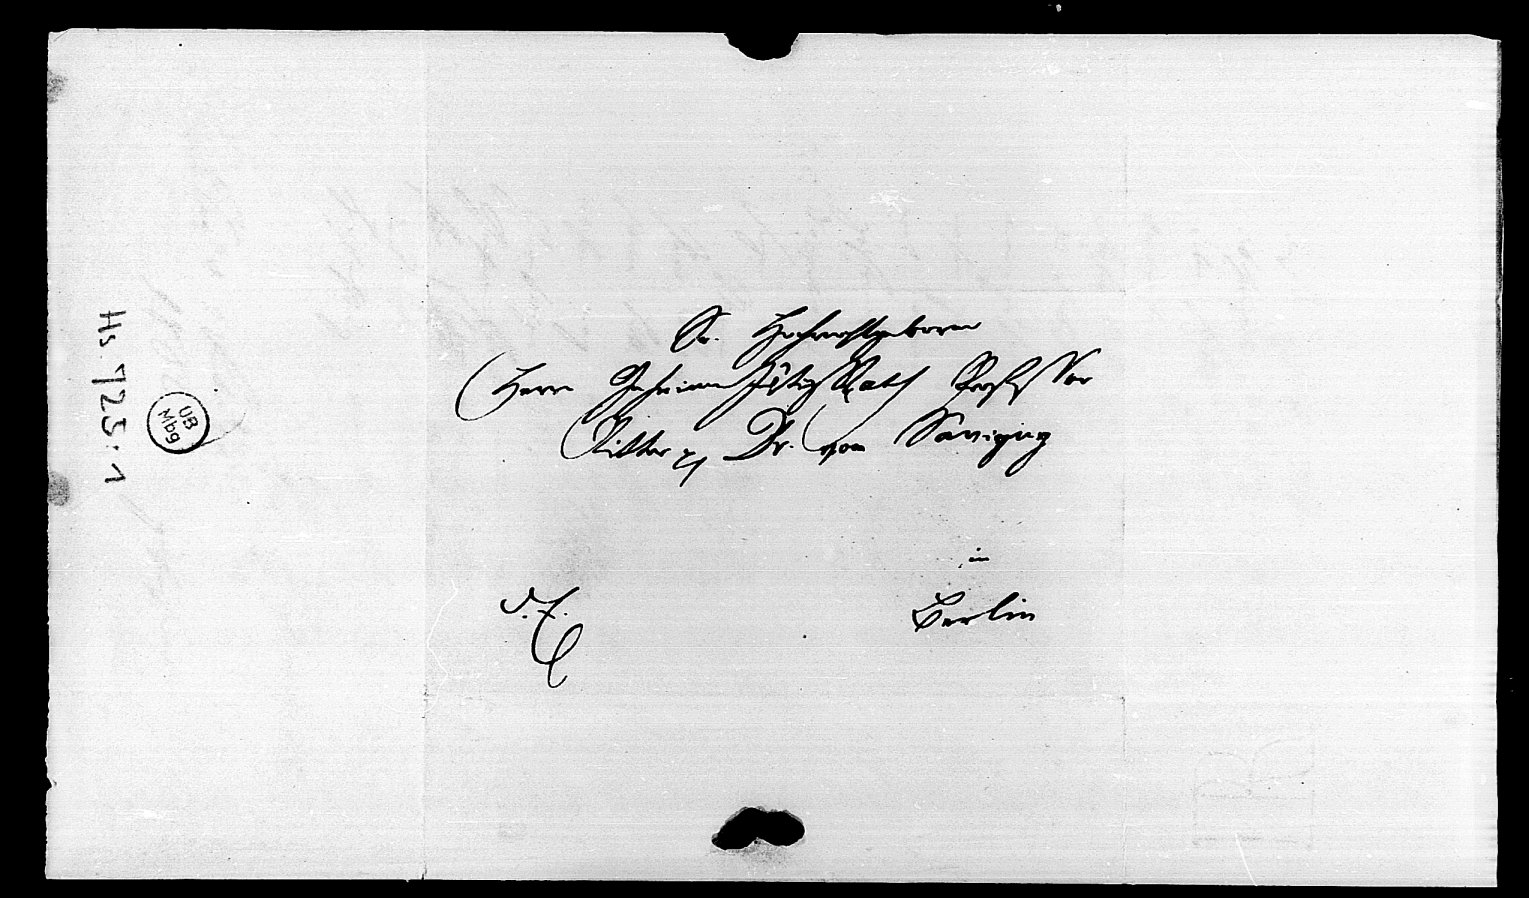 Sr. Hochwohlgeboren
Herrn Geheimen Justiz Rath Professor
Ritter pp Dr. von Savigny
in
Berlin
d. E.
Hs. 725:1
UB
Mbg